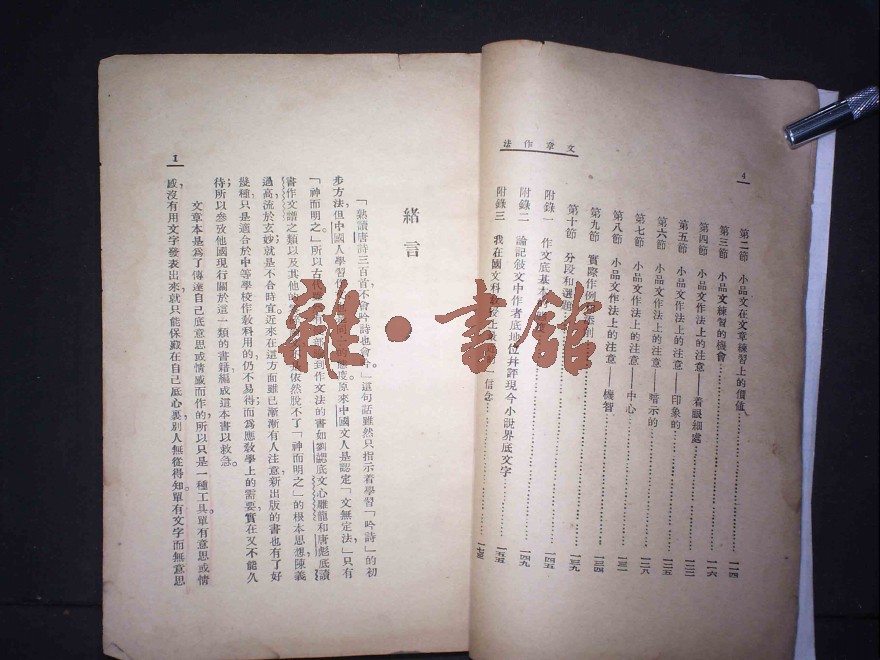 文章作法
4
第二節 小品文在文章練習上的價値 一一四
第三節 小品文練習的機會 一一六
第四節 小品文作法上的注意——着眼細處
第五節 小品文作法上的注意——印象的
第六節 小品文作法上的注意——暗示的 一二五
第七節 小品文作法上的注意——中心 一二八
第八節 小品文作法上的注意——機智 一三一
第九節 實際作例 一三四
第十節 分段和選題 一三九
附錄一 作文底基本 一四五
附錄二 論記敍文中作者底地位幷評現今小說界底文字 一四九
附錄三 我在國文科敎授上 信念
1
緒言
「熟讀唐詩三百首，不會吟詩也會吟。」這句話雖然只指示着學習「吟詩」的初
步方法，但中國人學習 態度。原來中國文人是認定「文無定法，」只有
「神而明之。」所以古代 到作文法的書如劉勰底文心雕龍和唐彪底讀
書作文譜之類以及其他的 依然脫不了「神而明之」的根本思想，陳義
過高，流於玄妙，就是不合時宜。近來在這方面雖已漸漸有人注意，新出版的書也有了好
幾種，只是適合於中等學校作敎科用的，仍不易得。而爲應敎學上的需要，實在又不能久
待；所以參攷他國現行關於這一類的書籍，編成這本書以救急。
文章本是爲了傳達自己底意思或情感而作的，所以只是一種工具。單有意思或情
感，沒有用文字發表出來，就只能保藏在自己底心裏，別人無從得知。單有文字而無意思
雜·書館